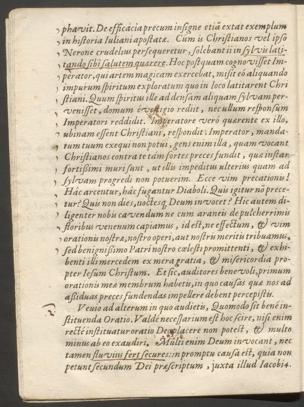 phavit. De efficacia precum insigne etiã extat exemplum
in historia Iuliani apostatæ. Cum is Christianos vel ipso
Nerone crudelius persequeretur, solebant ii in sylvis lati-
tando sibi salutem quærere. Hoc postquam cognovisset Im-
perator, qui artem magicam exercebat, misit eò aliquando
impurum spiritum exploratum quo in loco latitarent Chri
stiani. Quum spiritus ille ad densam aliquam sylvam per-
venisset, domum rediit, nec ullum responsum
Imperatori reddidit. Imperatore verò quærente ex illo,
ubinam essent Christiani, respondit: Imperator, manda-
tum tuum exequi non potui, gens enim illa, quam vocant
Christianos contra te tam fortes preces fundit, quæ instar
fortissimi muri sunt, ut illis impeditus ulterius quam ad
sylvam progredi non potuerim. Ecce vim precationum!
Hâc arcentur, hâc fugantur Diaboli. Quis igitur nõ prece-
tur? Quis non dies, noctesq; Deum invocet? Hic autem di-
ligenter nobis cavendum ne cum araneis de pulcherrimis
floribus venenum capiamus, id est, ne effectum, & vim
orationis nostræ, nostro operi, aut nostris meritis tribuamus,
sed benignissimo Patri nostro cælesti promittenti, & exhi-
benti illi mercedem ex mera gratia, & misericordia pro-
pter Iesum Christum. Et sic, auditores benevoli, primum
orationis meæ membrum habetis, in quo causas quæ nos ad
assiduas preces fundendas impellere debent percepistis.
Venio ad alterum in quo audietis, Quomodo sit bene in-
stituenda Oratio. Valde necessarium est hoc scire, nisi enim
rectè instituatur oratio Deo placere non potest, & multo
minus ab eo exaudiri. Multi enim Deum invocant, nec
tamen fluvius fert secures: in promptu causa est, quia non
petunt secundum Dei præscriptum, juxta illud Iacobi 4.